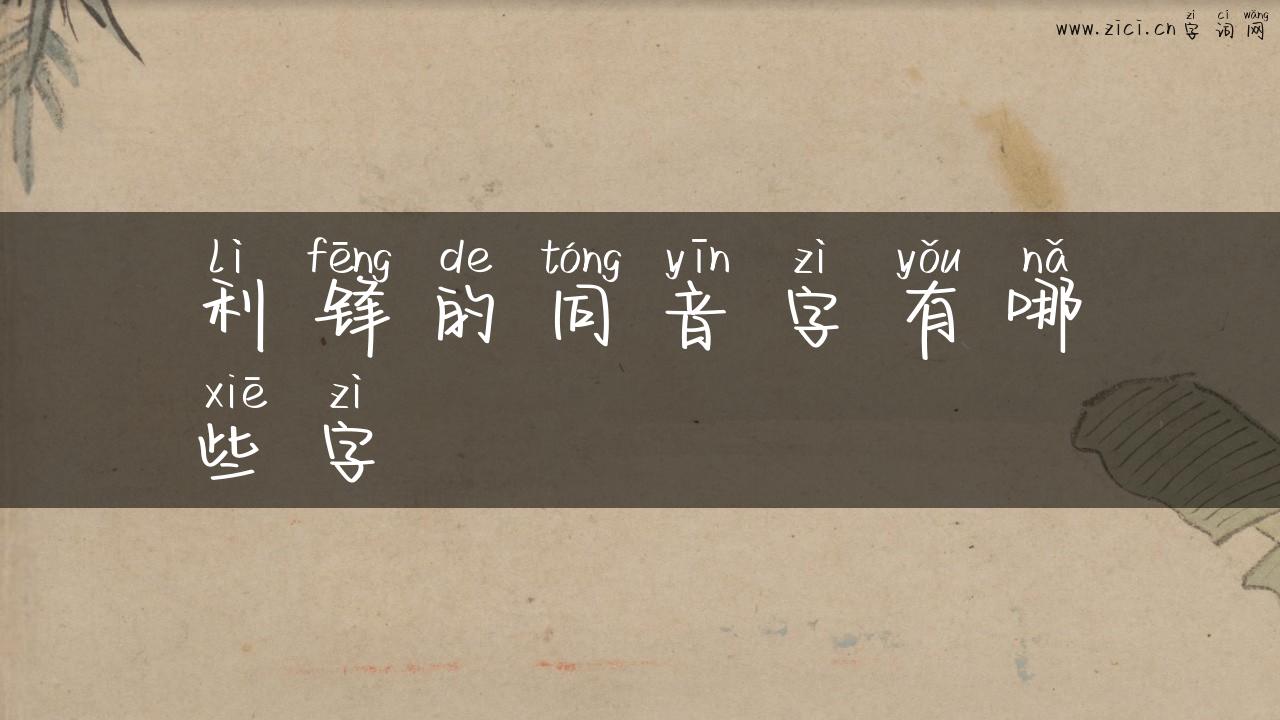 zì cí wǎng
www.zici.cn 字词网
lì fēng de tóng yīn zì yǒu nǎ
利锋的同音字有哪
xiē zì
些字